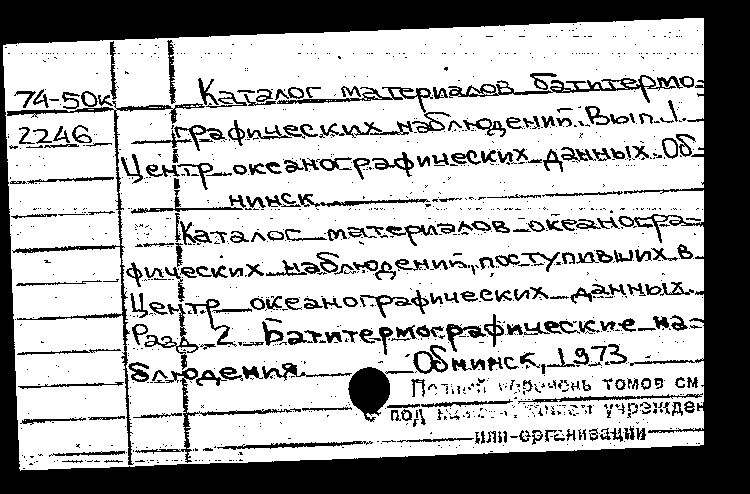 74-50к
2246
Каталог материалов батитермо-
графических наблюдений. Вып. 1.
Центр океанографических данных. Об-
нинск.
Каталог материалов океаногра-
фических наблюдений, поступивших в
Центр океанографических данных.
Разд. 2 Батитермографические на-
блюдения. Обнинск, 1973
Полный перечень томов см.
под учрежден
или организации